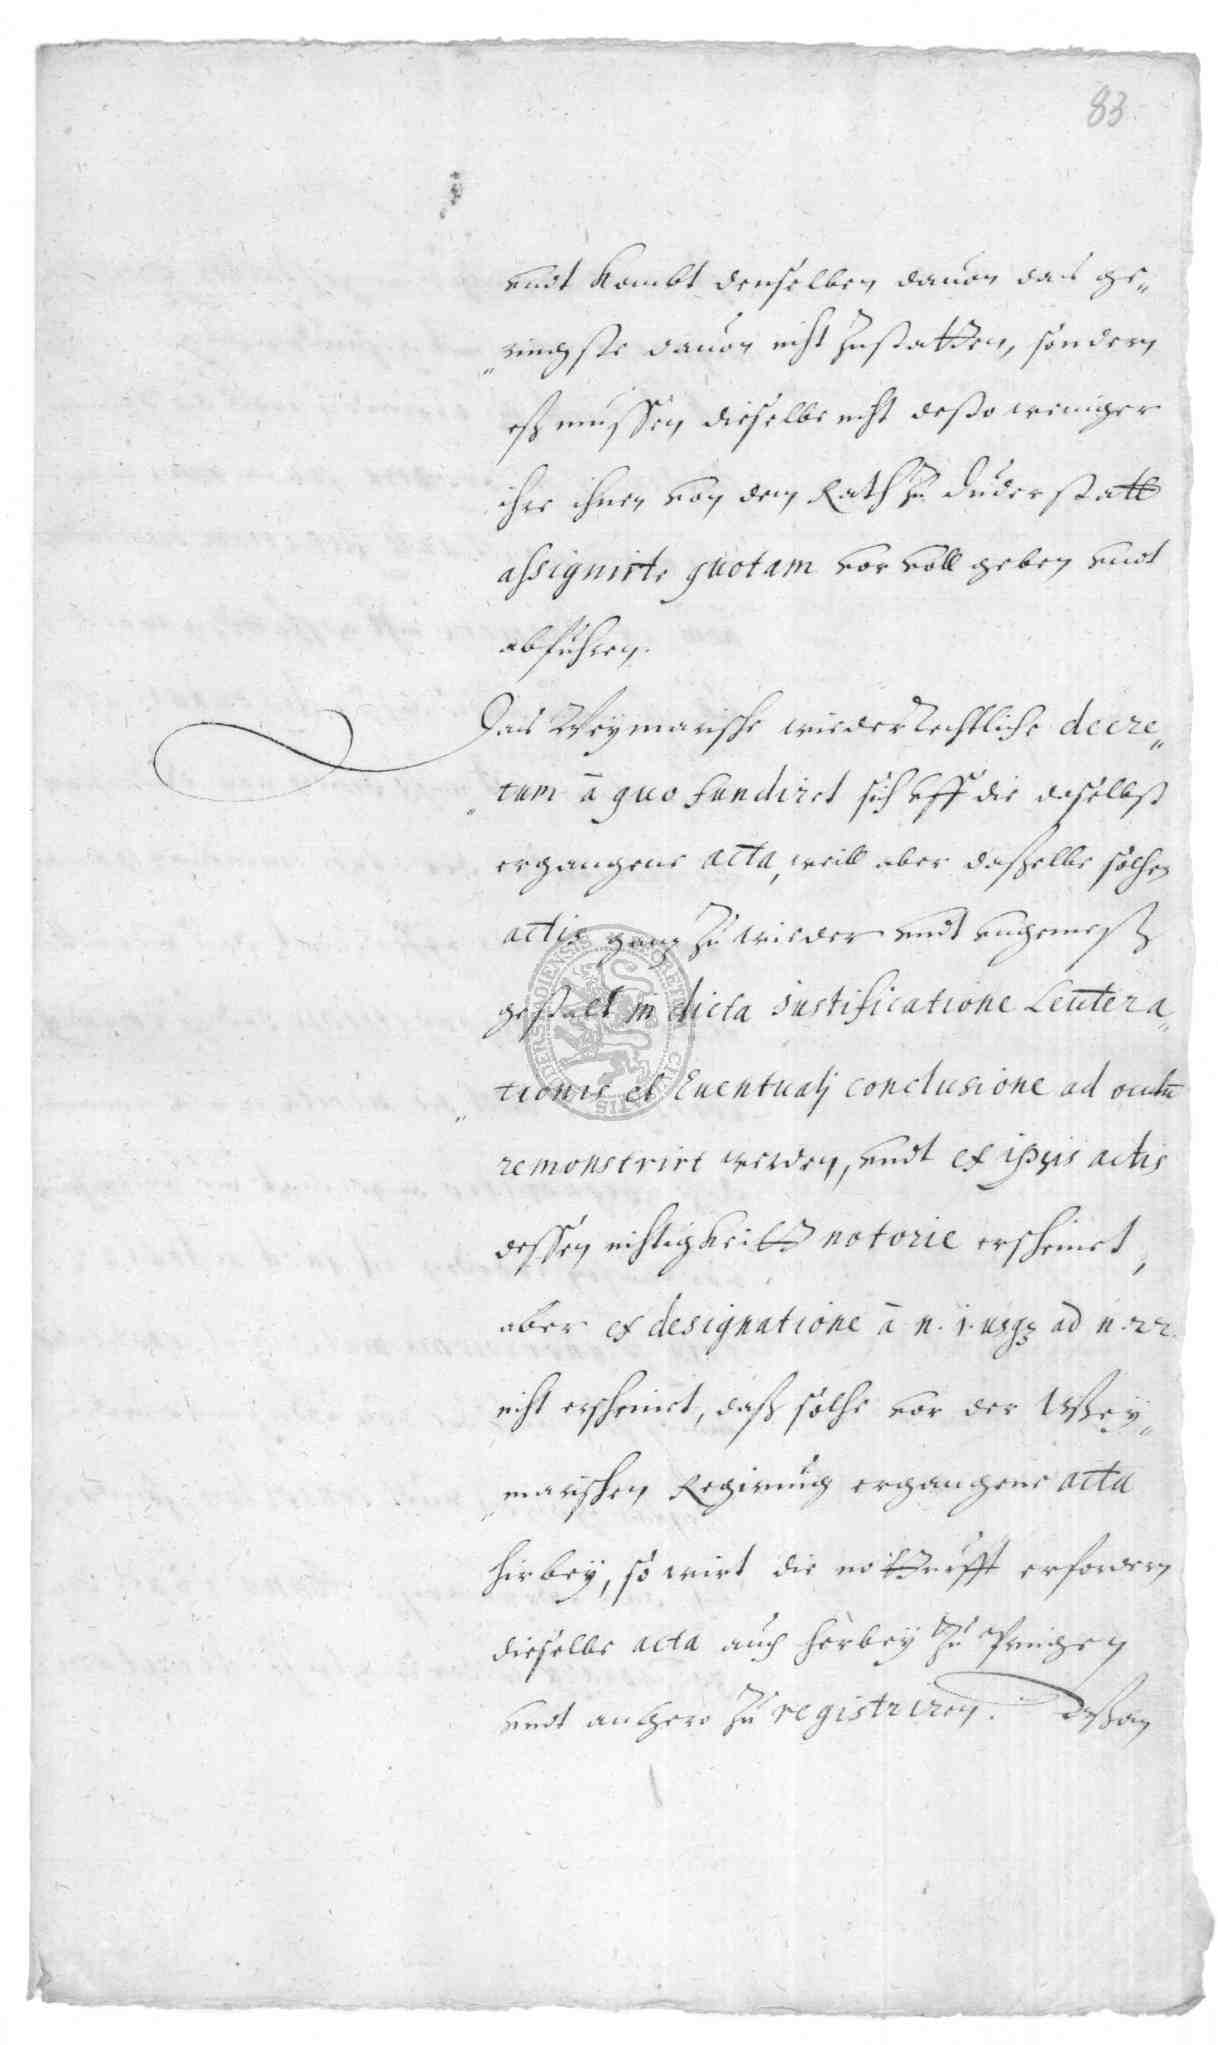 83
undt kombt denselben dauon das ge„
„ringste dauon nicht zustatten, sondern
eß mußen dieselbe nicht desto weniger
ihre ihnen von dem Rath zu Duderstatt
assignirte quotam vor voll geben undt
abführen.
Das Weymarische wiederrechtliche decre„
„tum à quo fundiret sich uff die daselbst
ergangene acta, weill aber daßelbe solchen
actis gantz zu wieder undt ungemeß
gestalt in dicta Justificatione Leutera„
„tionis et Euentualj conclusione ad oculū
remonstrirt werden, undt ex ipsis actis
dessen nichtigkeitt notorie erscheinet,
aber ex designatione à n. 1. usq3 ad n. 22.
nicht erscheinet, daß solche vor der Wey„
„marischen Regirung ergangene acta
hirbey, so wirt die notturfft erfordern
dieselbe acta auch herbey zu bringen
undt anhero zu registriren. Wan